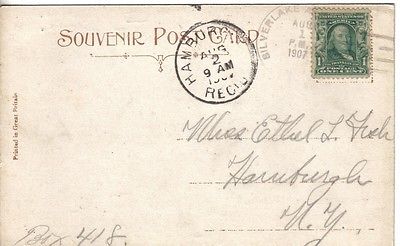 SOUVENIR POST CARD
HAMBURG
AUG
2
9 AM
1907
REC'D
SILVERLAKE
AUG
1
P.M.
1907
ONE CENT
Printed in Great Britain
Miss Ethel L. Fish
Hamburgh
N.Y.
Box 418.